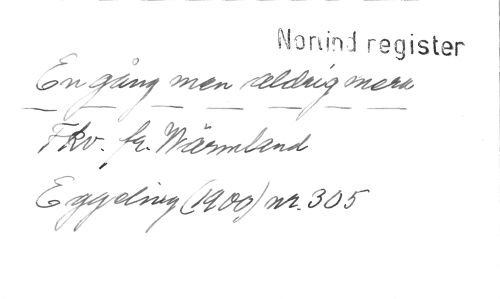 Norrind register
En gång men aldrig mera
Fkv. fr. Wärmland
Eggeling (1900) nr. 305